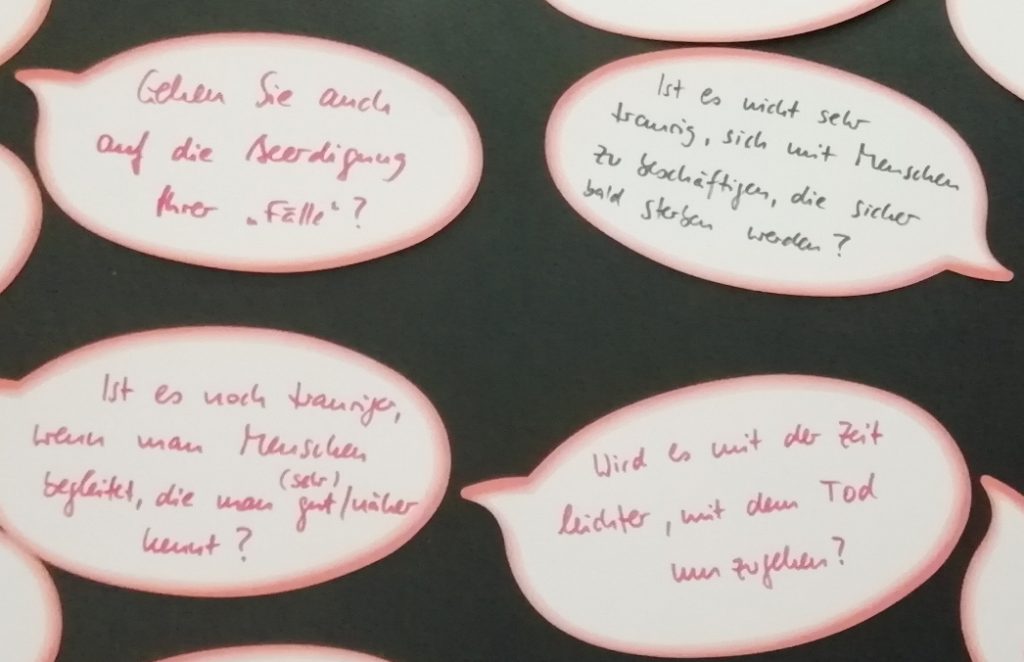 Gehen Sie auch
auf die Beerdigung
Ihrer „Fälle“?
Ist es nicht sehr
traurig, sich mit Menschen
zu beschäftigen, die sicher
bald sterben werden?
Ist es noch trauriger,
wenn man Menschen
(sehr)
begleitet, die man gut/näher
kennt?
Wird es mit der Zeit
leichter, mit dem Tod
umzugehen?